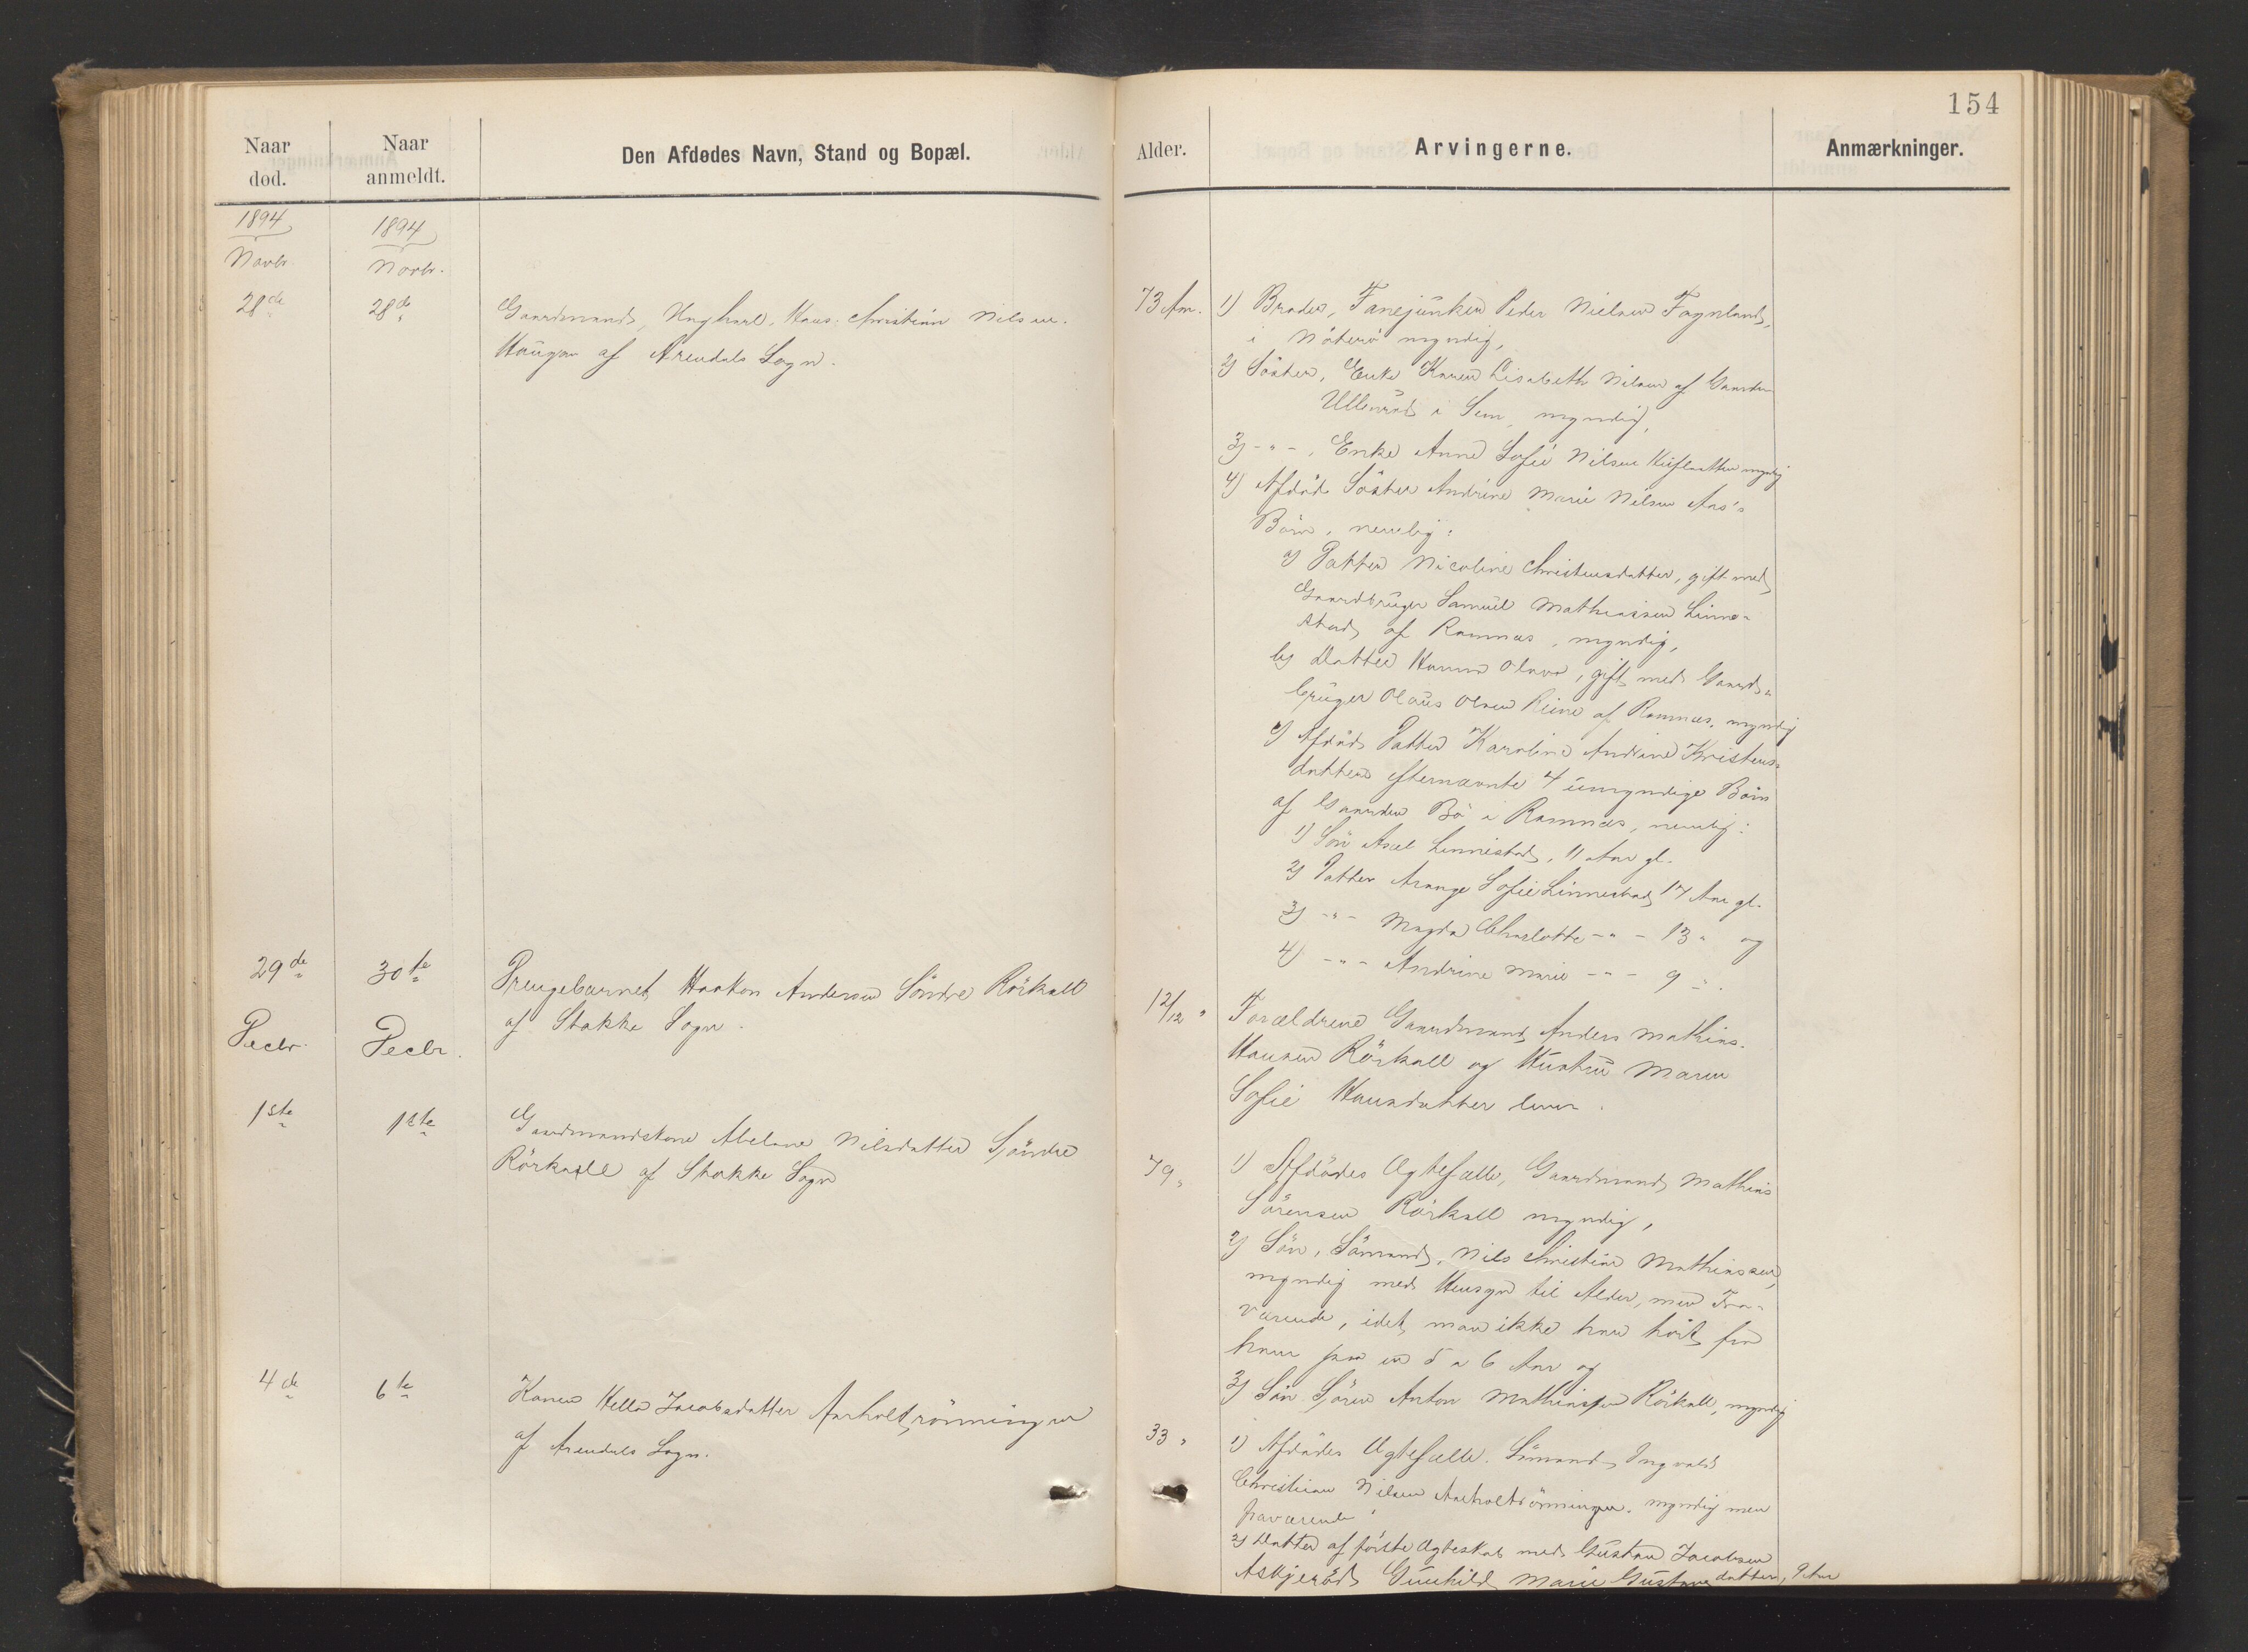 154
Naar død.
Naar anmeldt.
Den Afdødes Navn, Stand og Bopæl.
Alder.
Arvingerne.
Anmærkninger.
1894
1894
Novbr.
Novbr.
28de
28de
Gaardmand, Ungkarl, Hans Christian Nilsen
Haugan af Arendals Sogn.
73 Aar.
1) Broder, Fanejunker Peder Nielsen Fognland,
i Nöterö myndig,
2) Söster, Enke Karen Lisabeth Nilsen af Gaarden
Ullenröd i Sem, myndig,
3) -"-, Enke Anne Sofie Nilsen myndig
4) Afdöde Söster Andrine Marie Nilsen Aas's
Börn, nemlig:
a) Datter Nicoline Christensdatter, gift med
Gaardbruger Samuel Mathiassen Linne-
stad, af Ramnæs, myndig,
b) Datter Hanna Olava, gift med Gaard-
bruger Olaus Olsen Reine af Ramnæs, myndig
c) Afdöde Datter Karoline Andrine Kristens-
datters efternævnte 4 umyndige Börn
af Gaarden Bö i Ramnæs, nemlig:
1) Sön Axel Linnestad, 11 Aar gl.
2) Datter Aranga Sofie Linnestad 17 Aar gl.
3) -"- Magda Charlotte -"- 13 " og
4) -"- Andrine Marie -"- 9 ".
29de
30te
Drengebarnet Haakon Andersen Söndre Rörkoll
af Stokke Sogn.
12/12 "
Forældrene Gaardmand Anders Mathias
Hansen Rörkoll og Hustru Maren
Sofie Hansdatter lever.
Decbr.
Decbr.
1ste
1ste
Gaardmandskone Abelone Nilsdatter Söndre
Rörkoll af Stokke Sogn
79 "
1) Afdödes Ægtefælle, Gaardmand Mathias
Sörensen Rörkoll myndig,
2) Sön, Sömand, Nils Christian Mathiassen,
myndig med Hensyn til Alder, men Fra-
værende, idet man ikke har hört fra
ham paa en 5 a 6 Aar og
3) Sön Sören Anton Mathiassen Rörkoll, myndig
4de
6te
Konen Hella Jacobsdatter Aarholtrönningen
af Arendals Sogn.
33 "
1) Afdödes Ægtefælle, Sömand, Ingvald
Christian Nilsen Aarholtrönningen, myndig men
fraværende
2) Datter af förste Ægteskab med Gustav Jacobsen
Askjeröd, Gunhild Marie Gustavsdatter, 9 Aar